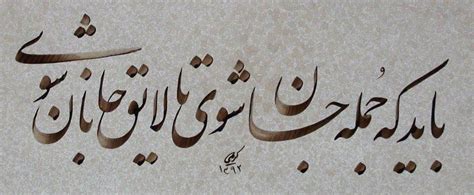 باید که جُمله جان شوی تا لایق جانان شوی
۱۳۹۲